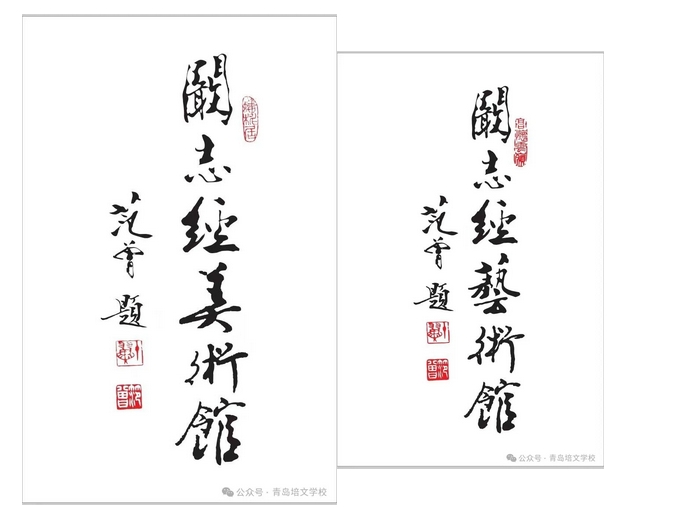 闞志經美術館
范曾題
公众号 · 青岛培文学校
闞志經藝術館
范曾題
公众号 · 青岛培文学校